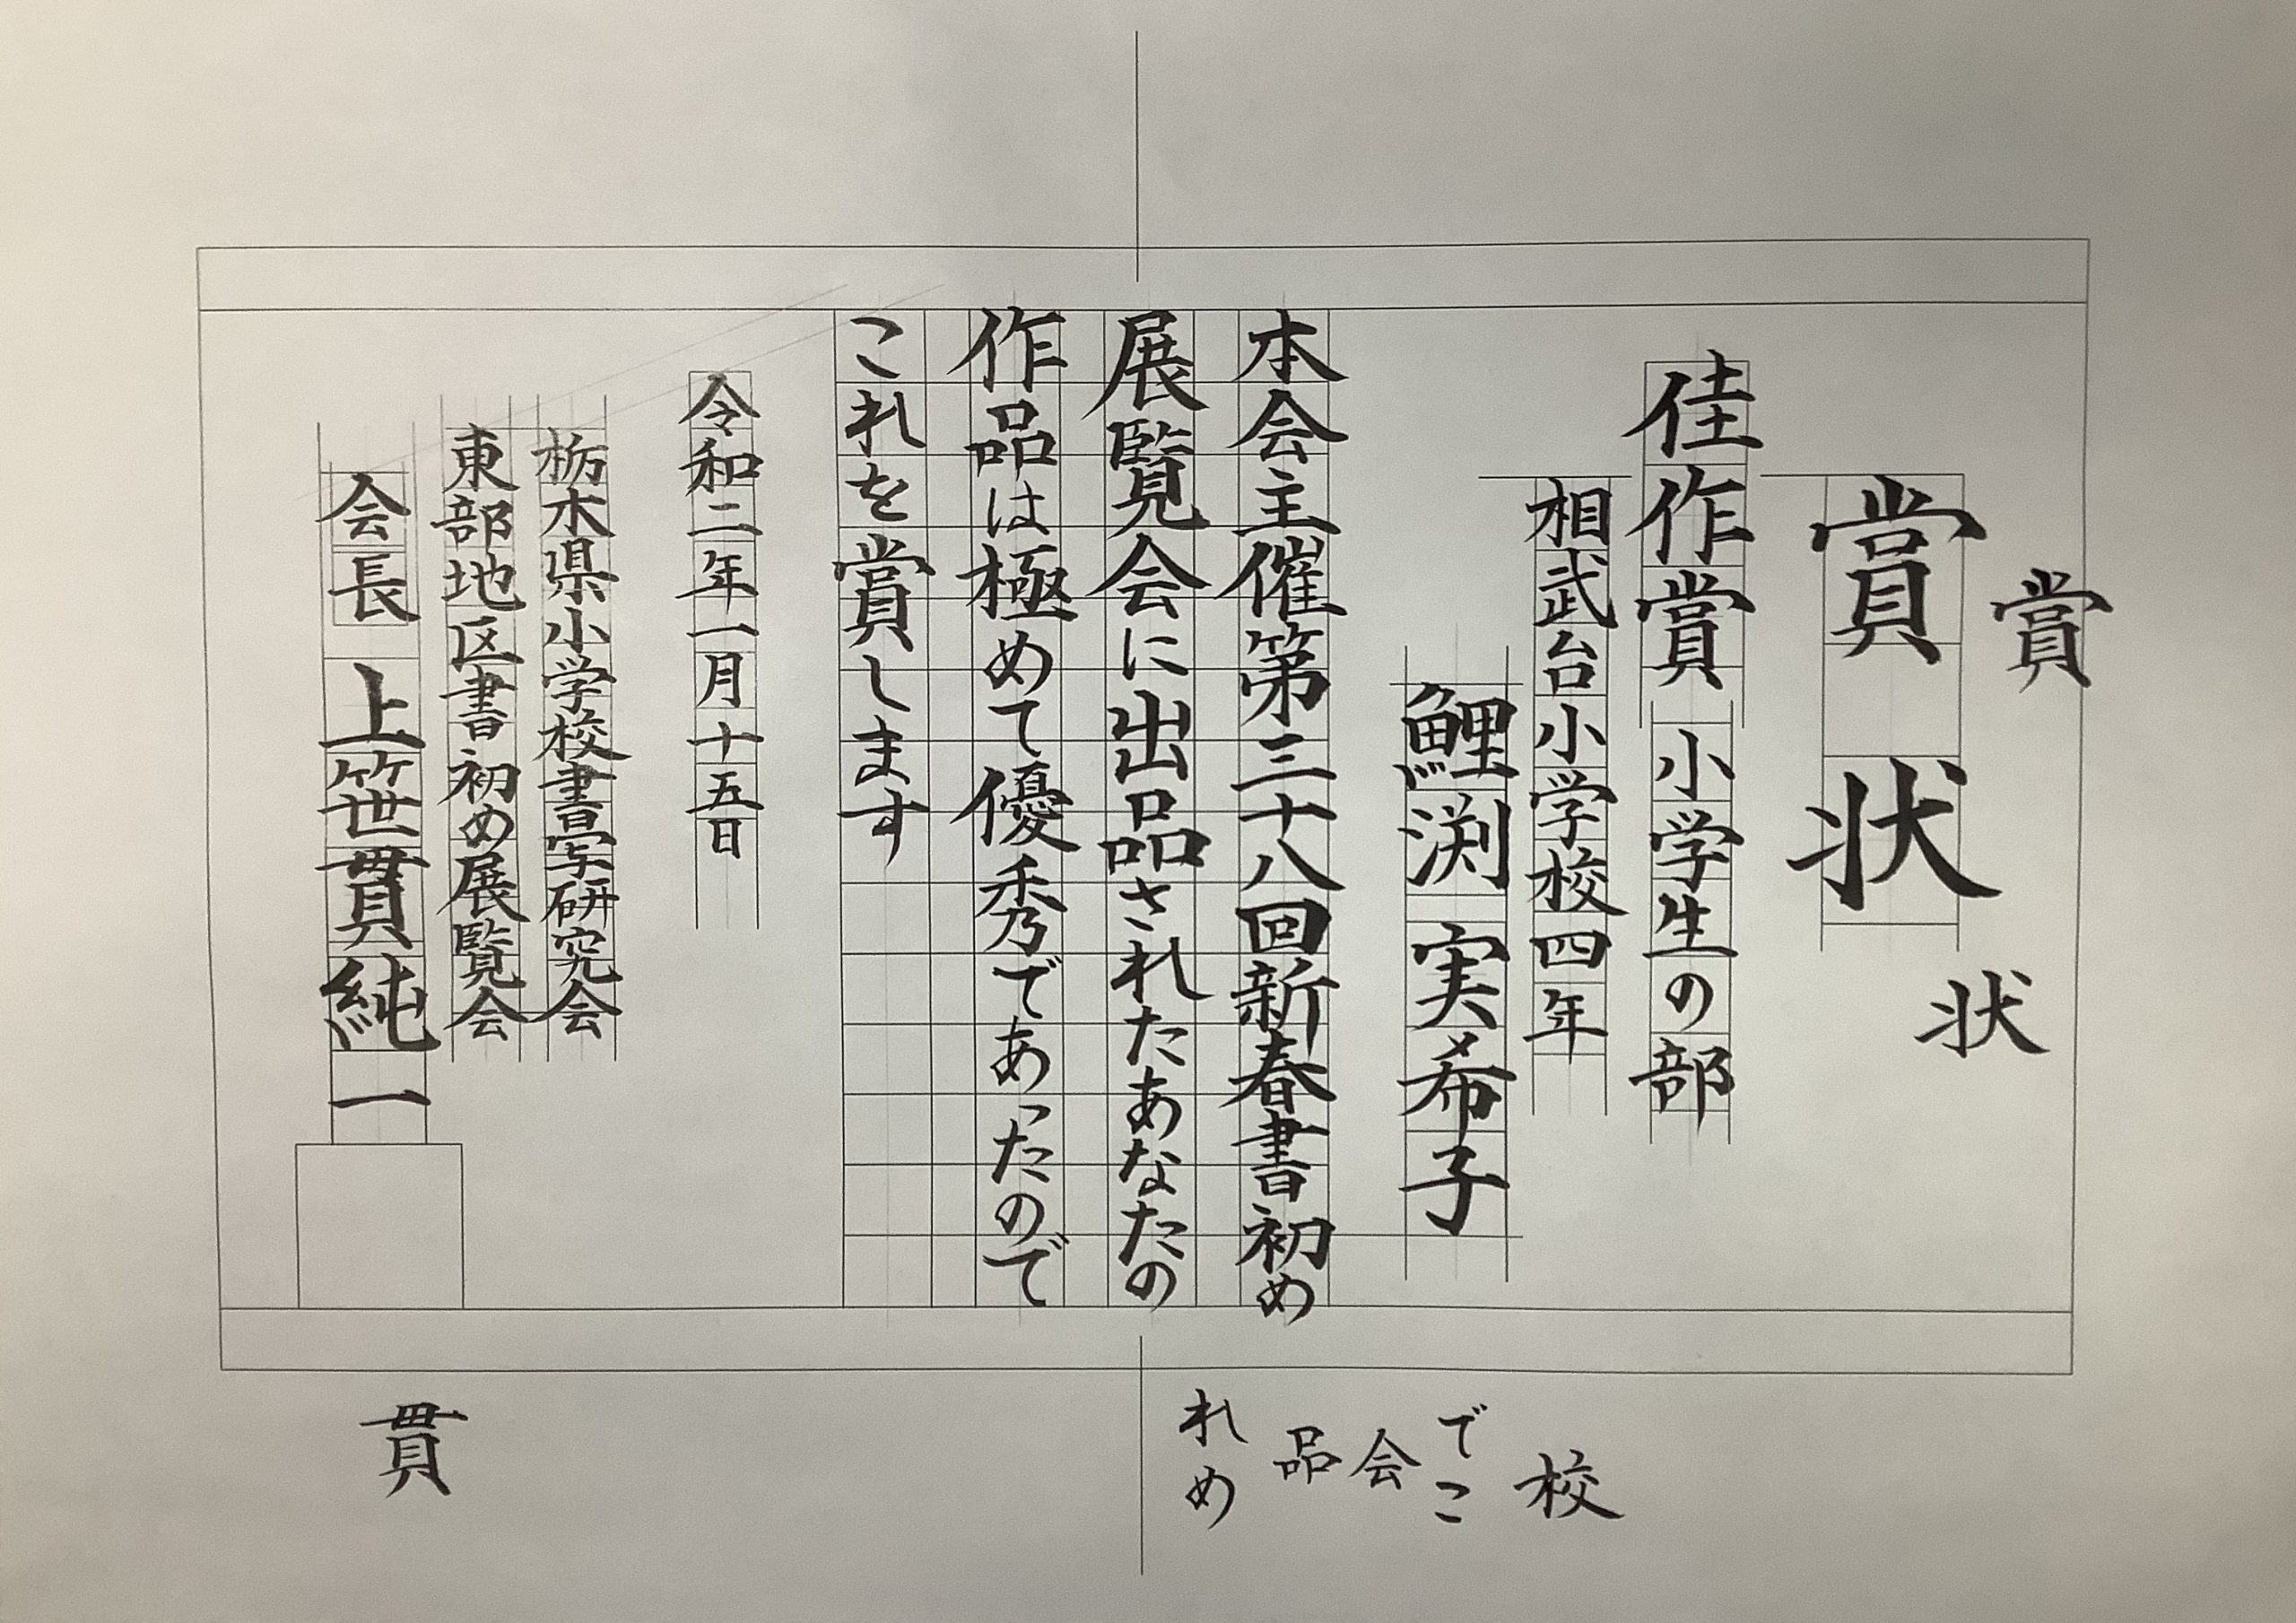 賞状
佳作賞 小学生の部
相武台小学校四年
鯉渕 実希子
本会主催第三十八回新春書初め
展覧会に出品されたあなたの
作品は極めて優秀であったので
これを賞します
令和二年一月十五日
栃木県小学校書写研究会
東部地区書初め展覧会
会長 上笹貫純一
賞
状
校
でこ
会
品
れめ
貫